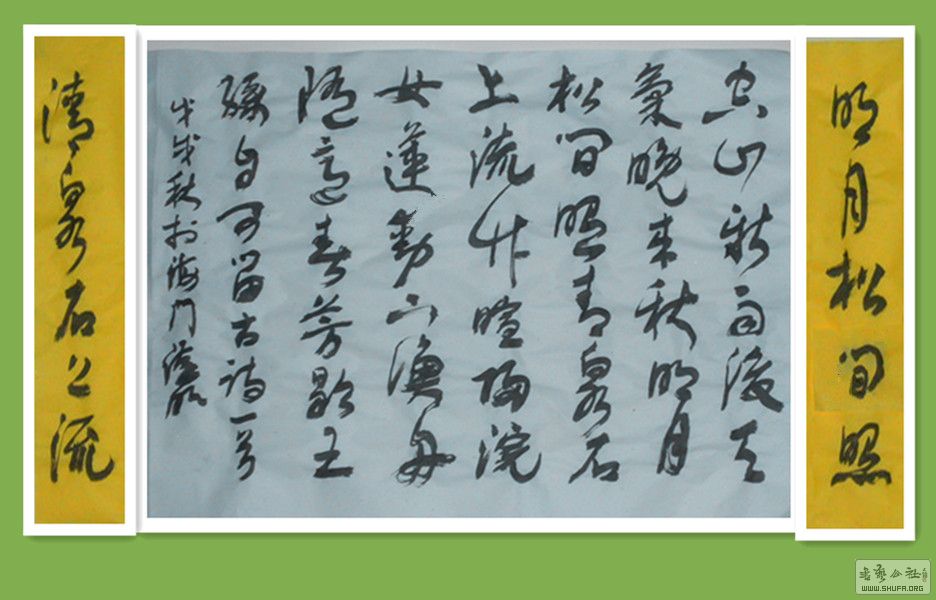 明月松间照
空山新雨後天
氣晚来秋明月
松间照清泉石
上流竹喧歸浣
女蓮動下漁舟
随意春芳歇王
孫自可留古詩一首
戊戌秋於海門
清泉石上流
書藝公社
WWW.SHUFA.ORG